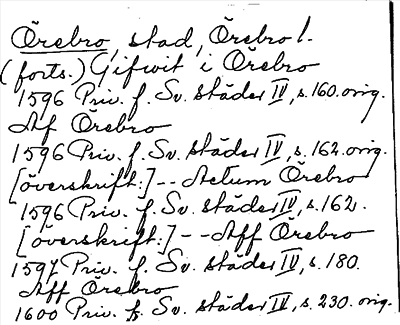 Örebro, stad, Örebro l.
(forts.) Gifwit i Örebro
1596 Priv. f. Sv. städer IV, s. 160. orig.
Af Örebro
1596 Priv. f. Sv. städer IV, s. 162. orig.
[överskrift:] -- Actum Örebro
1596 Priv. f. Sv. städer IV, s. 162.
[överskrift:] -- Aff Örebro
1597 Priv. f. Sv. städer IV, s. 180.
Aff Örebro
1600 Priv. f. Sv. städer IV, s. 230. orig.